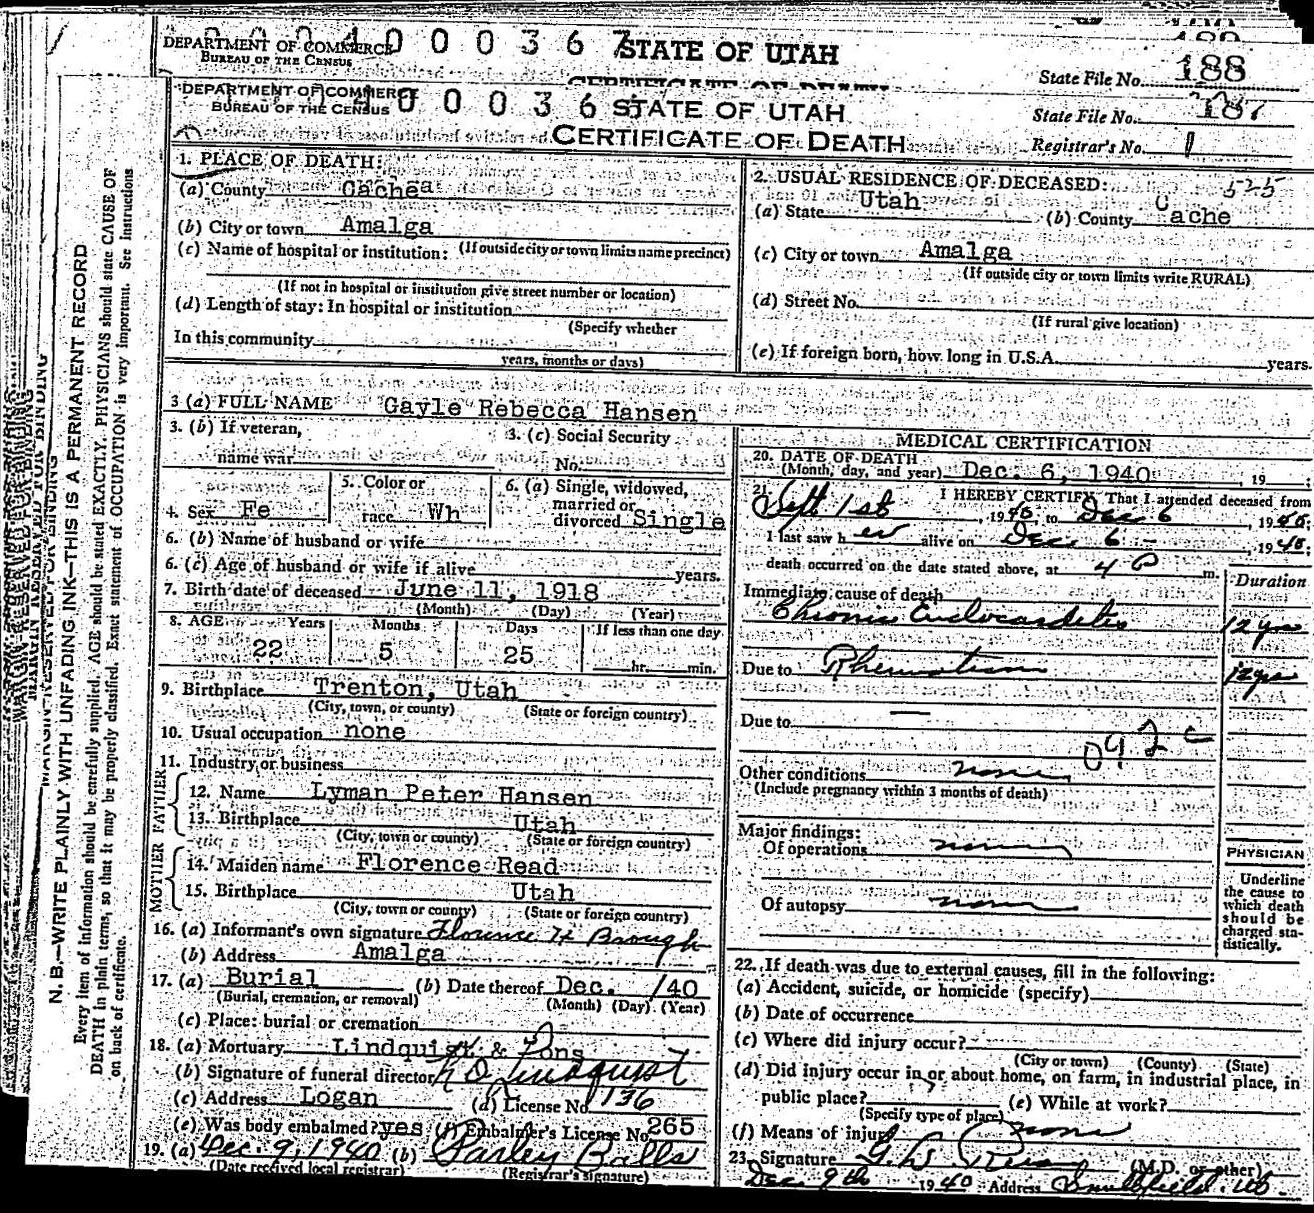 DEPARTMENT OF COMMERCE
BUREAU OF THE CENSUS
0 0 0 3 6 7
STATE OF UTAH
State File No. 188
DEPARTMENT OF COMMERCE
BUREAU OF THE CENSUS
0 0 0 3 6
STATE OF UTAH
CERTIFICATE OF DEATH
State File No. 187
Registrar's No. 1
MARGIN RESERVED FOR BINDING
N. B.—WRITE PLAINLY WITH UNFADING INK—THIS IS A PERMANENT RECORD
Every item of information should be carefully supplied. AGE should be stated EXACTLY. PHYSICIANS should state CAUSE OF
DEATH in plain terms, so that it may be properly classified. Exact statement of OCCUPATION is very important. See Instructions
on back of certificate.
1. PLACE OF DEATH:
(a) County Cache
(b) City or town Amalga
(If outside city or town limits name precinct)
(c) Name of hospital or institution:
(If not in hospital or institution give street number or location)
(d) Length of stay: In hospital or institution
(Specify whether
In this community
years, months or days)
2. USUAL RESIDENCE OF DECEASED: 525
(a) State Utah (b) County Cache
(c) City or town Amalga
(If outside city or town limits write RURAL)
(d) Street No.
(If rural give location)
(e) If foreign born, how long in U.S.A. years.
3 (a) FULL NAME Gayle Rebecca Hansen
3. (b) If veteran,
name war
3. (c) Social Security
No.
4. Sex Fe
5. Color or
race Wh
6. (a) Single, widowed,
married or
divorced Single
6. (b) Name of husband or wife
6. (c) Age of husband or wife if alive years.
7. Birth date of deceased June 11, 1918
(Month) (Day) (Year)
8. AGE Years Months Days If less than one day
22 5 25 hr. min.
9. Birthplace Trenton, Utah
(City, town, or county) (State or foreign country)
10. Usual occupation none
11. Industry or business
FATHER
12. Name Lyman Peter Hansen
13. Birthplace Utah
(City, town or county) (State or foreign country)
MOTHER
14. Maiden name Florence Read
15. Birthplace Utah
(City, town or county) (State or foreign country)
16. (a) Informant's own signature Florence H Brough
(b) Address Amalga
17. (a) Burial (b) Date thereof Dec. /40
(Burial, cremation, or removal) (Month) (Day) (Year)
(c) Place: burial or cremation
18. (a) Mortuary Lindquist & Sons
(b) Signature of funeral director Lindquist
(c) Address Logan (d) License No. 136
(e) Was body embalmed? yes (f) Embalmer's License No. 265
19. (a) Dec. 9, 1940 (b) Parley Balls
(Date received local registrar) (Registrar's signature)
MEDICAL CERTIFICATION
20. DATE OF DEATH
(Month, day, and year) Dec. 6, 1940, 19 ;
21. I HEREBY CERTIFY, That I attended deceased from
Sept 1st, 1940 to Dec 6, 1940;
I last saw h er alive on Dec 6, 1940;
death occurred on the date stated above, at 4 P m.
Duration
Immediate cause of death
Chronic Endocarditis 12 yrs
Due to Rheumatism 12 yrs
Due to —
092 c
Other conditions none
(Include pregnancy within 3 months of death)
Major findings:
Of operations none
Of autopsy none
PHYSICIAN
Underline
the cause to
which death
should be
charged sta-
tistically.
22. If death was due to external causes, fill in the following:
(a) Accident, suicide, or homicide (specify)
(b) Date of occurrence
(c) Where did injury occur?
(City or town) (County) (State)
(d) Did injury occur in or about home, on farm, in industrial place, in
public place? (e) While at work?
(Specify type of place)
(f) Means of injury none
23. Signature (M.D. or other)
Dec 9th 1940 Address Smithfield, Ut.